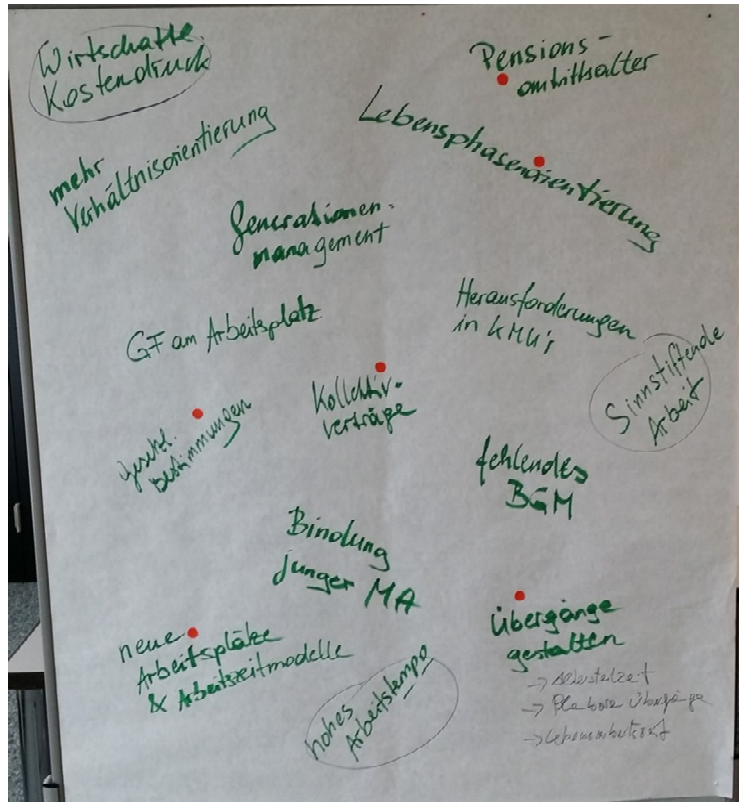 Wirtschaftl.
Kostendruck
Pensions-
antrittsalter
mehr
Verhältnisorientierung
Lebensphasenorientierung
Generationen-
management
GF am Arbeitsplatz
Herausforderungen
in KMU's
Sinnstiftende
Arbeit
Kollektiv-
verträge
gesetzl.
Bestimmungen
fehlendes
BGM
Bindung
junger MA
neue
Arbeitsplätze
& Arbeitszeitmodelle
Übergänge
gestalten
→ Altersteilzeit
→ Übergänge
→ Lebensarbeitszeit
hohes
Arbeitstempo